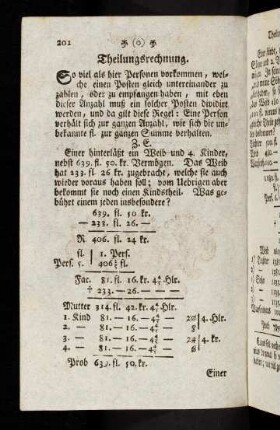 202 ❧ (o) ❧
Theilungsrechnung.
So viel als hier Personen vorkommen, wel-
che einen Posten gleich untereinander zu
zahlen, oder zu empfangen haben, mit eben
dieser Anzahl muß ein solcher Posten dividirt
werden, und da gilt diese Regel: Eine Person
verhält sich zur ganzen Anzahl, wie sich die un-
bekannte fl. zur ganzen Summe verhalten.
Z. E.
Einer hinterläßt ein Weib und 4. Kinder,
nebst 639. fl. 50. kr. Vermögen. Das Weib
hat 233. fl 26 kr. zugebracht, welche sie auch
wieder voraus haben soll; vom Uebrigen aber
bekommt sie noch einen Kindstheil. Was ge-
bührt einem jeden insbesondere?
639. fl. 50 kr.
— 233. fl. 26. —
R. 406. fl. 24 kr.
fl | 1. Pers.
Pers. 5. | 406 fl.
Fac. 81. fl. 16. kr. Hlr.
† 233. — 26. —
Mutter 314. fl. 42. kr. Hlr.
1. Kind 81. — 16. — 4. Hlr.
2. — 81. — 16. —
3. — 81. — 16. —
4. — 81. — 16. —
Prob 639. fl. 50. kr.
Einer